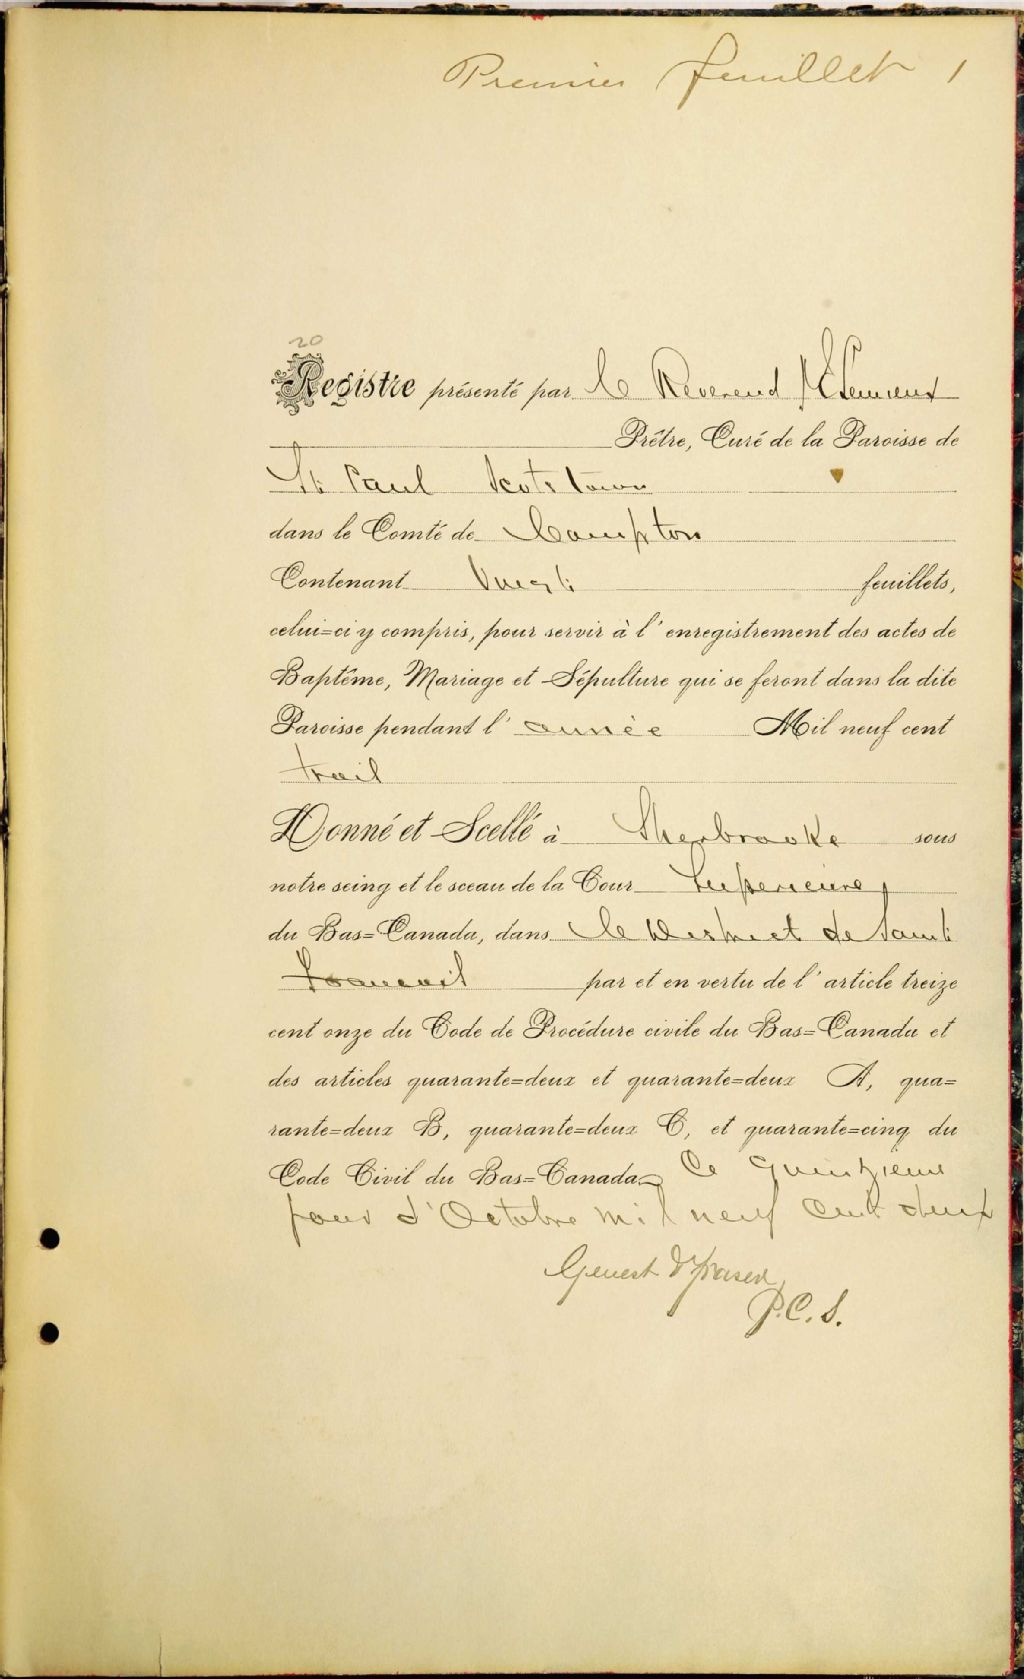 Premier feuillet 1
20
Registre présenté par le Reverend Lemieux
Prêtre, Curé de la Paroisse de
St Paul Scotstown
dans le Comté de Compton
Contenant Vingt feuillets,
celui=ci y compris, pour servir à l'enregistrement des actes de
Baptême, Mariage et Sépulture qui se feront dans la dite
Paroisse pendant l'année Mil neuf cent
trois
Donné et Scellé à Sherbrooke sous
notre seing et le sceau de la Cour Superieure
du Bas=Canada, dans le District de Saint
Francois par et en vertu de l'article treize
cent onze du Code de Procédure civile du Bas=Canada et
des articles quarante=deux et quarante=deux A, qua=
rante=deux B, quarante=deux C, et quarante=cinq du
Code Civil du Bas=Canada Ce quinzieme
jour d'Octobre mil neuf cent deux
Genest & Fraser
P.C.S.